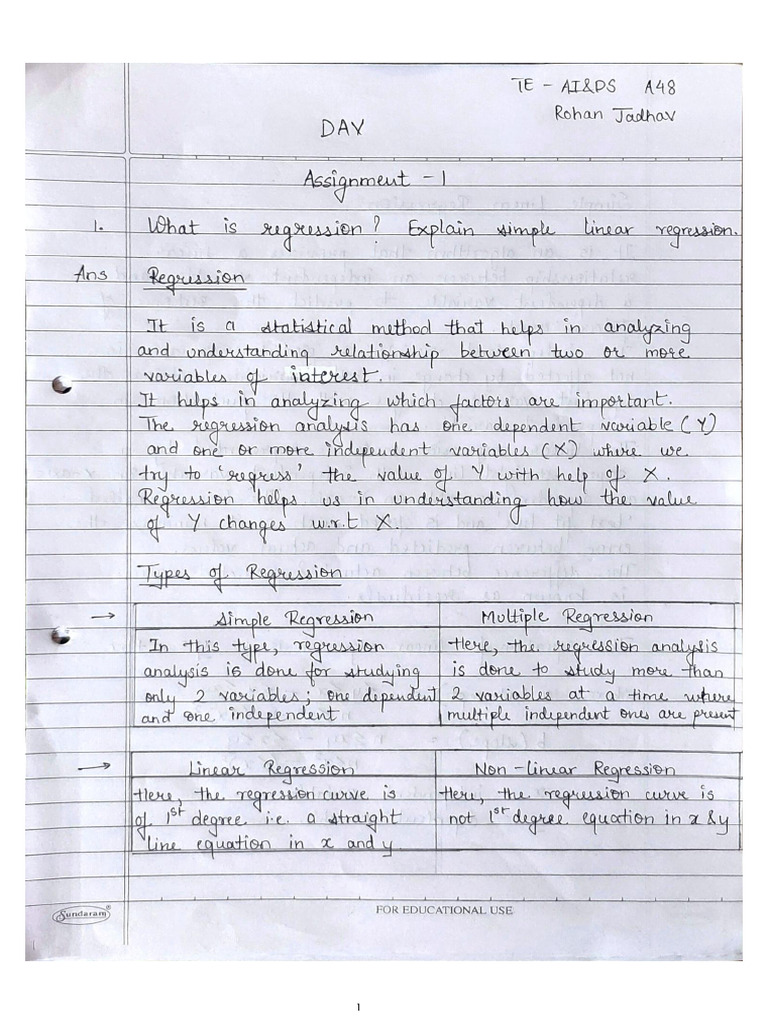 TE - AI&DS A48
Rohan Jadhav
DAV
Assignment - 1
1. What is regression? Explain simple linear regression.
Ans Regression
It is a statistical method that helps in analyzing
and understanding relationship between two or more
variables of interest.
It helps in analyzing which factors are important.
The regression analysis has one dependent variable (Y)
and one or more independent variables (X) where we
try to 'regress' the value of Y with help of X.
Regression helps us in understanding how the value
of Y changes w.r.t X.
Types of Regression
→ Simple Regression Multiple Regression
In this type, regression Here, the regression analysis
analysis is done for studying is done to study more than
only 2 variables; one dependent 2 variables at a time where
and one independent multiple independent ones are present
→ Linear Regression Non-linear Regression
Here, the regression curve is Here, the regression curve is
of 1st degree i.e. a straight not 1st degree equation in x & y
line equation in x and y
Sundaram®
FOR EDUCATIONAL USE
1